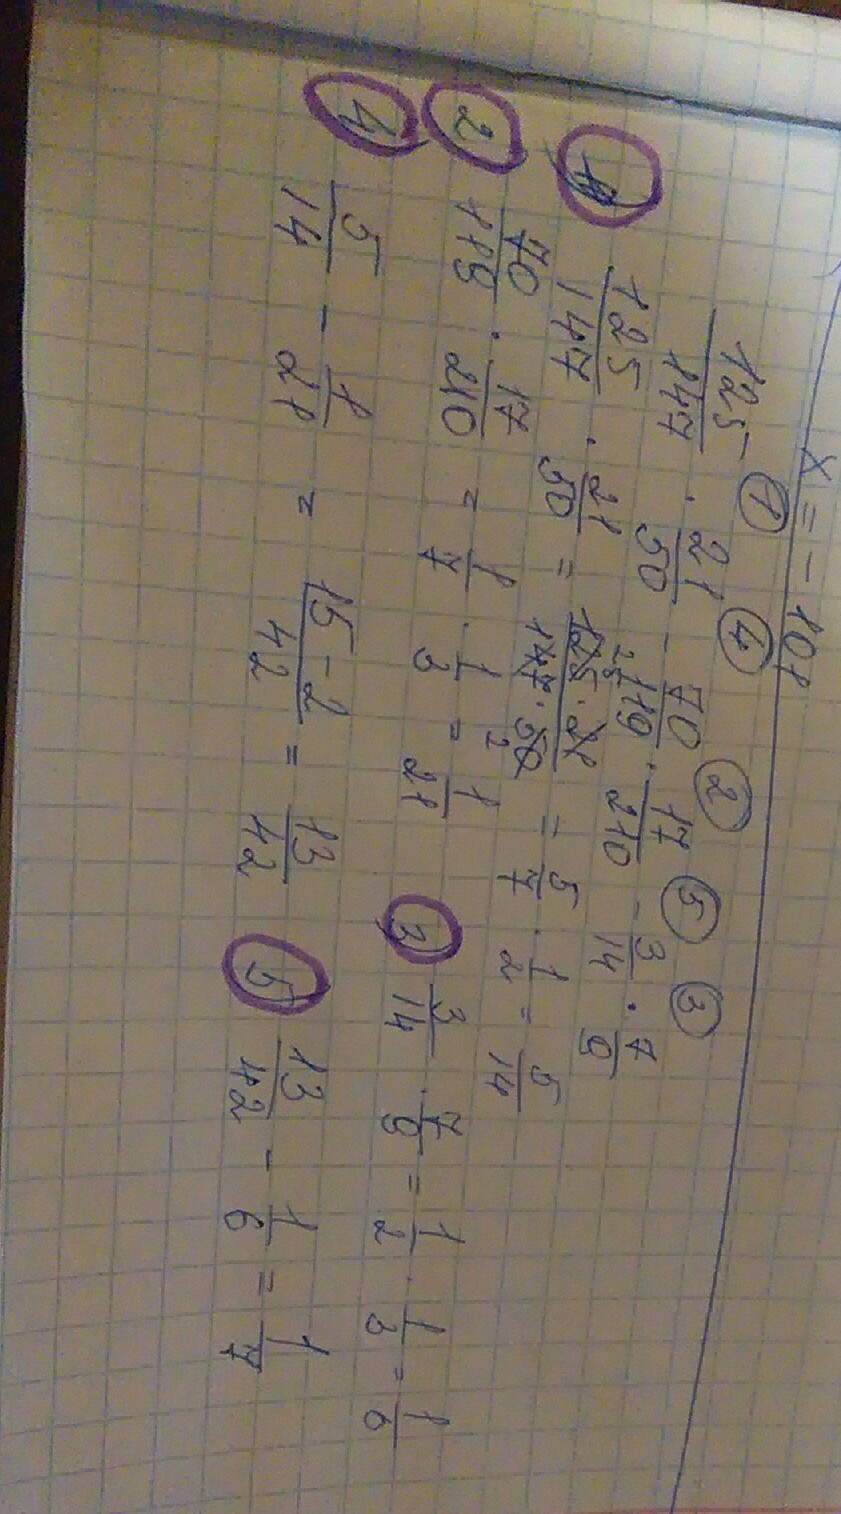 x = - 101
① ④ ② ⑤ ③
125/147 · 21/50 - 70/119 · 17/210 - 3/14 · 7/9
① 125/147 · 21/50 = 125 · 21/147 · 50 = 5/7 · 1/2 = 5/14
② 70/119 · 17/210 = 1/7 · 1/3 = 1/21 ③ 3/14 · 7/9 = 1/2 · 1/3 = 1/6
④ 5/14 - 1/21 = 15 - 2/42 = 13/42 ⑤ 13/42 - 1/6 = 1/7